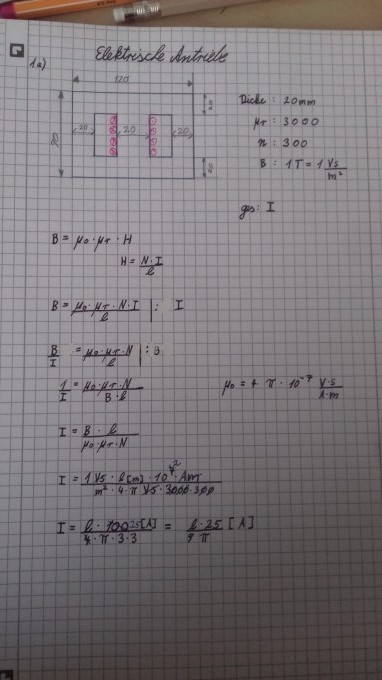 Elektrische Antriebe
1a)
120
20
80
20 20 20
20
Dicke : 20mm
μr : 3000
n : 300
B : 1T = 1 Vs/m²
ges: I
B = μ0 · μr · H
H = N·I/l
B = μ0 · μr · N · I / l |: I
B/I = μ0 · μr · N / l |: B
1/I = μ0 · μr · N / B · l
μ0 = 4 π · 10⁻⁷ V·s/A·m
I = B · l / μ0 · μr · N
I = 1 Vs · l[m] · 10⁷ · Am / m² · 4 · π Vs · 3000 · 300
I = l · 100 25 [A] / 4 · π · 3 · 3 = l · 25 / 9 π [A]